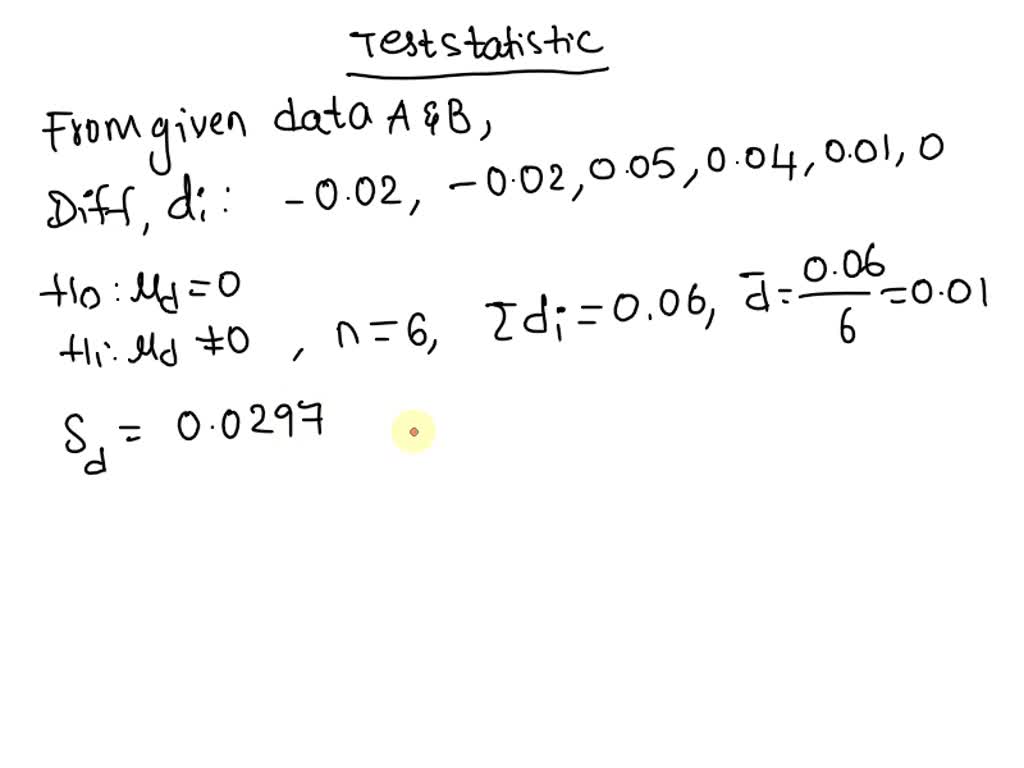 Test statistic
From given data A & B,
Diff, di : -0.02, -0.02, 0.05, 0.04, 0.01, 0
H0 : μd = 0
H1 : μd ≠ 0 , n = 6, Σdi = 0.06, d̄ = 0.06/6 = 0.01
Sd = 0.0297